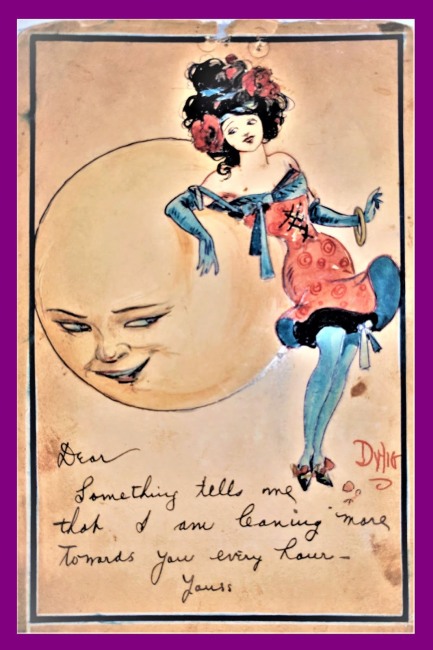 Dear
Something tells me
that I am leaning more
towards you every hour—
Yours